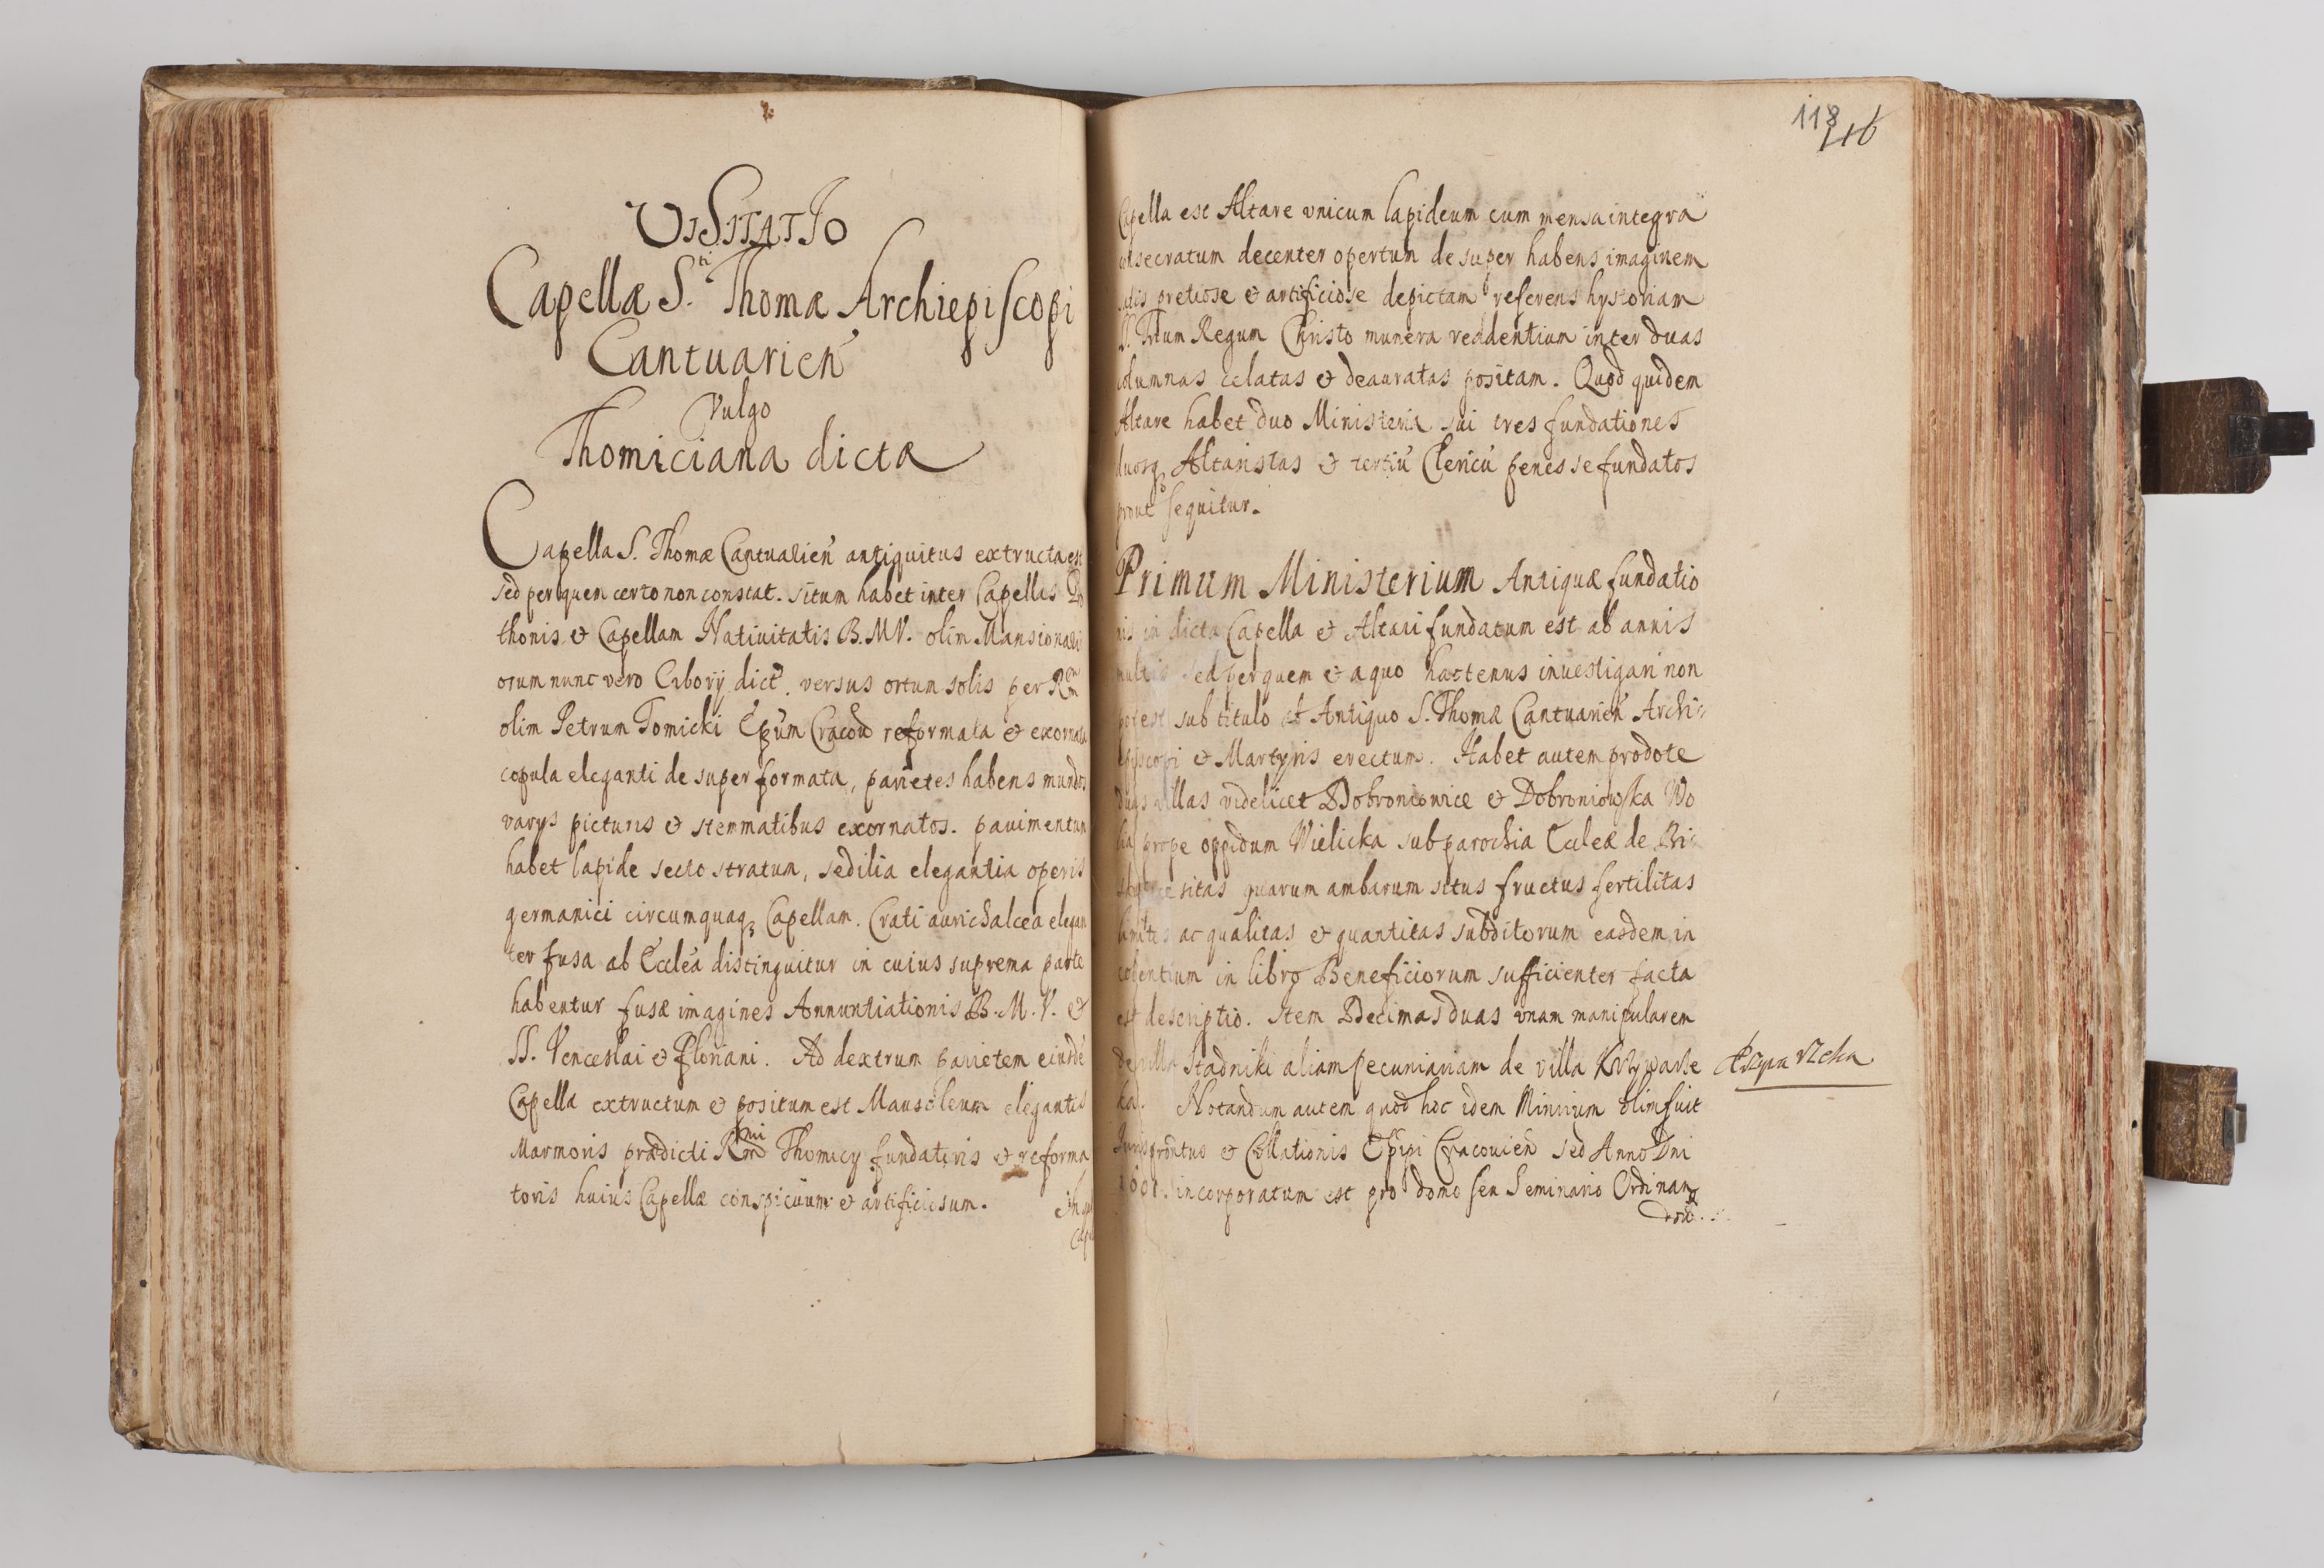 VISITATIO
Capellæ S.ti Thomæ Archiepiscopi
Cantuarien̄
Vulgo
Thomiciana dicta
Capella S. Thomæ Cantuarien̄ antiquitus extructa est
sed per quem certo non constat. situm habet inter Capellas
thonis & Capellam Natiuitatis B. M V. olim Mansionari
orum nunc vero Cibory dict. versus ortum solis per Rm̄
olim Petrum Tomicki Ep̄um Cracoū reformata & exornata
copula eleganti de super formata, parietes habens mundos
varys picturis & stemmatibus exornatos. pauimentum
habet lapide secto stratum, sedilia elegantia operis
germanici circumquaq3 Capellam. Crati aurichalcea elegan
ter fusa ab Ecclēa distinguitur in cuius suprema parte
habentur fusæ imagines Annuntiationis B. M. V. &
SS. Venceslai & Floriani. Ad dextrum parietem eiusdē
Capella extructum & positum est Mausoleum elegantis
Marmoris prædicti Rmi Thomicy fundatoris & reforma
toris huius Capellæ conspicuum & artificiosum.
118
116
Capella est Altare vnicum lapideum cum mensa integra
consecratum decenter opertum de super habens imaginem
satis pretiose & artificiose depictam referens hystoriam
Trium Regum Christo munera reddentium inter duas
columnas celatas & deauratas positam. Quod quidem
Altare habet duo Ministeria sui tres fundationes
duosq3 Altaristas & tertiū Clericū penes se fundatos
prout sequitur.
Primum Ministerium Antiquæ fundatio
nis in dicta Capella & Altari fundatum est ab annis
multis sed per quem & a quo hactenus inuestigari non
potest sub titulo Antiquo S. Thomæ Cantuarien̄ Archi=
episcopi & Martyris erectum. Habet autem pro dote
duas villas videlicet Dobroniowice & Dobroniowska Wo
la prope oppidum Wielicka sub parochia Eccleæ de Bi=
sitas quarum ambarum situs fructus fertilitas
limites ac qualitas & quantitas subditorum easdem in
colentium in libro Beneficiorum sufficienter facta
est descriptio. Item Decimas duas vnam manipularem
de villa Stadniki aliam pecuniariam de villa Krzywarze
ka. Notandum autem quod hoc idem Minrium olim fuit
& Collationis Ep̄ipi Cracouien̄ sed Anno Dni
incorporatum est pro domo seu Seminario Ordinan